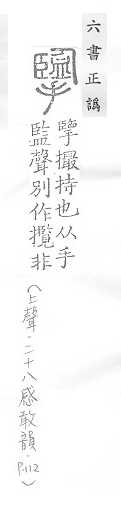 六書正譌
擥
擥撮持也从手
監聲別作攬非
(上聲.二十八感敢韻.P.112)